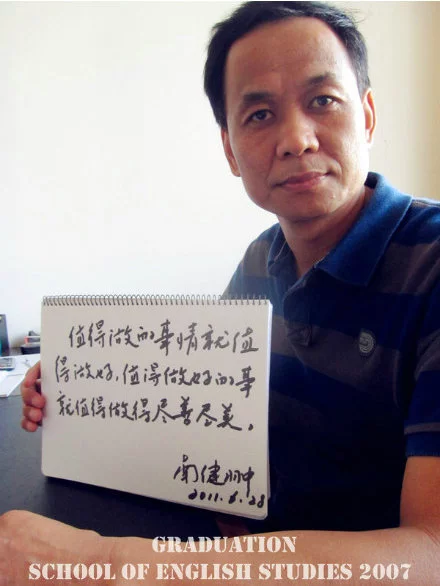 值得做的事情就值
得做好,值得做好的事
就值得做得尽善尽美。
南健翀
2011.6.28
GRADUATION
SCHOOL OF ENGLISH STUDIES 2007